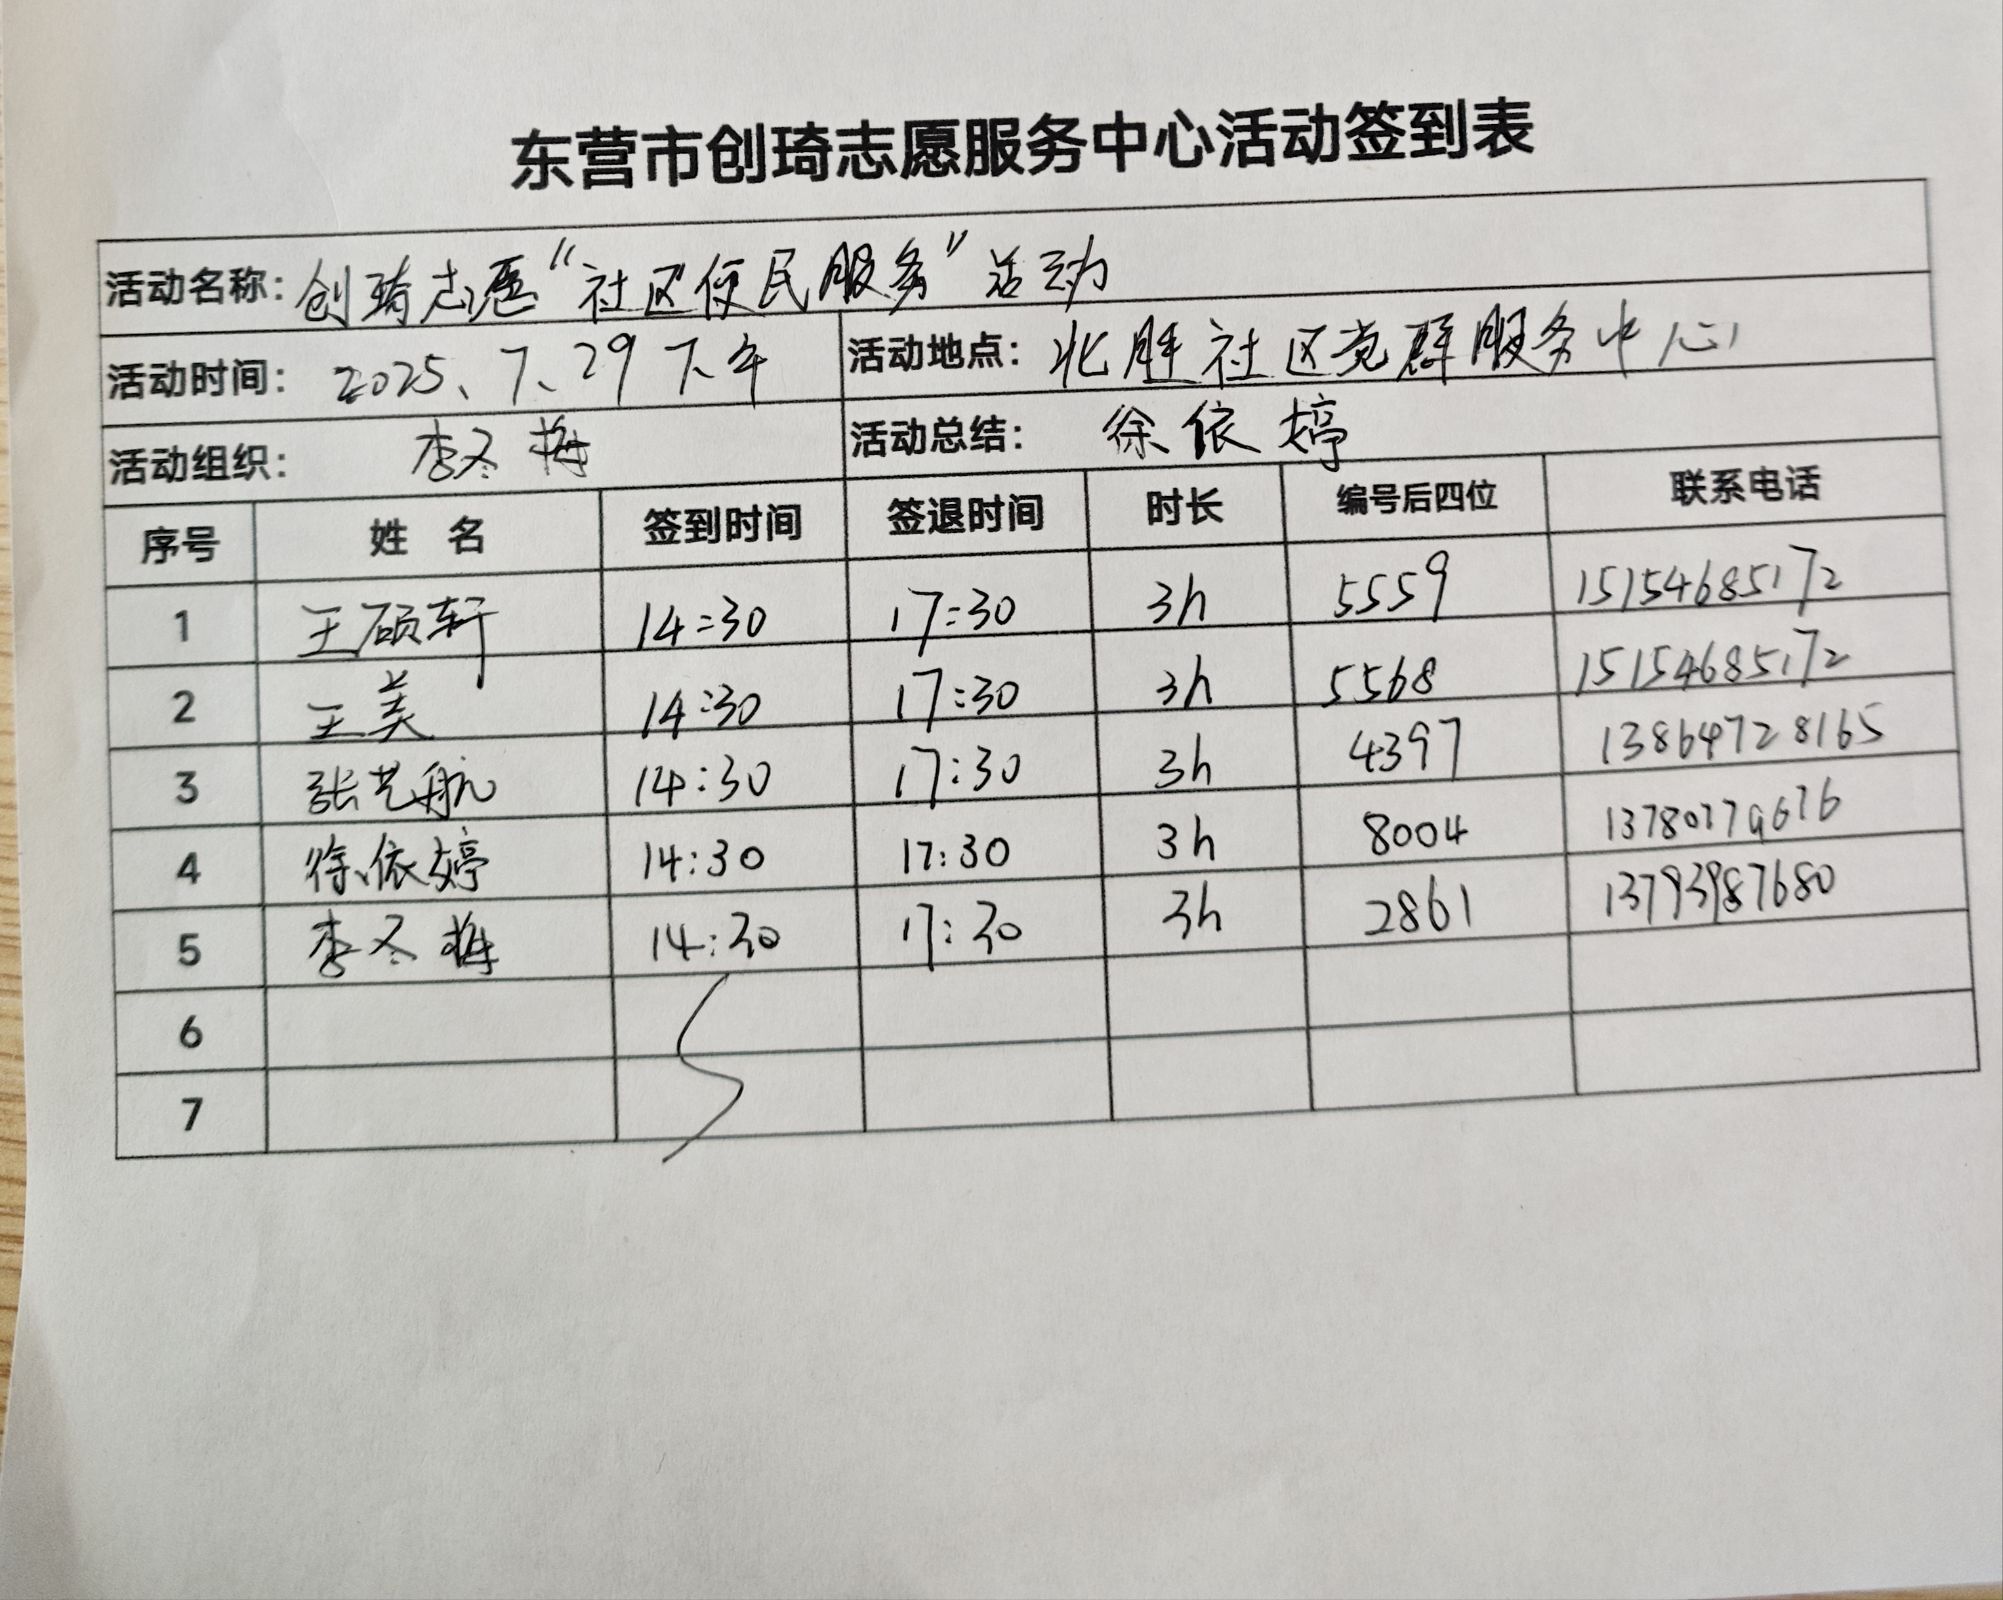 东营市创琦志愿服务中心活动签到表
活动名称：创琦志愿“社区便民服务”活动
活动时间：2025、7、29下午 活动地点：北胜社区党群服务中心
活动组织：李冬梅 活动总结：徐依婷
序号 姓 名 签到时间 签退时间 时长 编号后四位 联系电话
1 王硕轩 14:30 17:30 3h 5559 15154685172
2 王美 14:30 17:30 3h 5568 15154685172
3 张艺航 14:30 17:30 3h 4397 13864728165
4 徐依婷 14:30 17:30 3h 8004 13780779676
5 李冬梅 14:30 17:30 3h 2861 13793987680
6
7